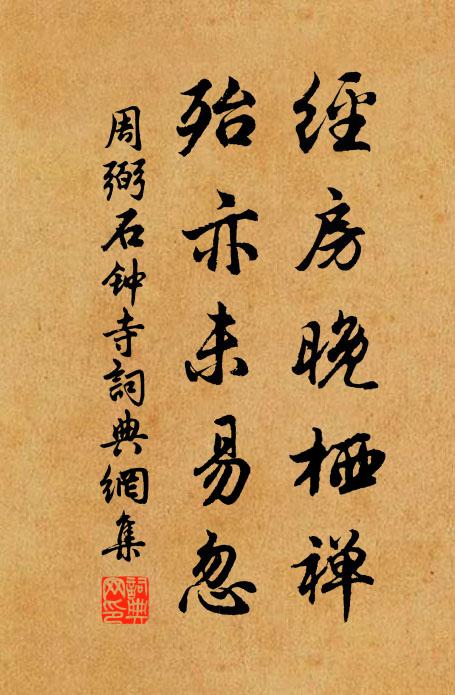 經房晚栖禅
殆亦未易忽
周弼石钟寺詞典網集
詞典网印